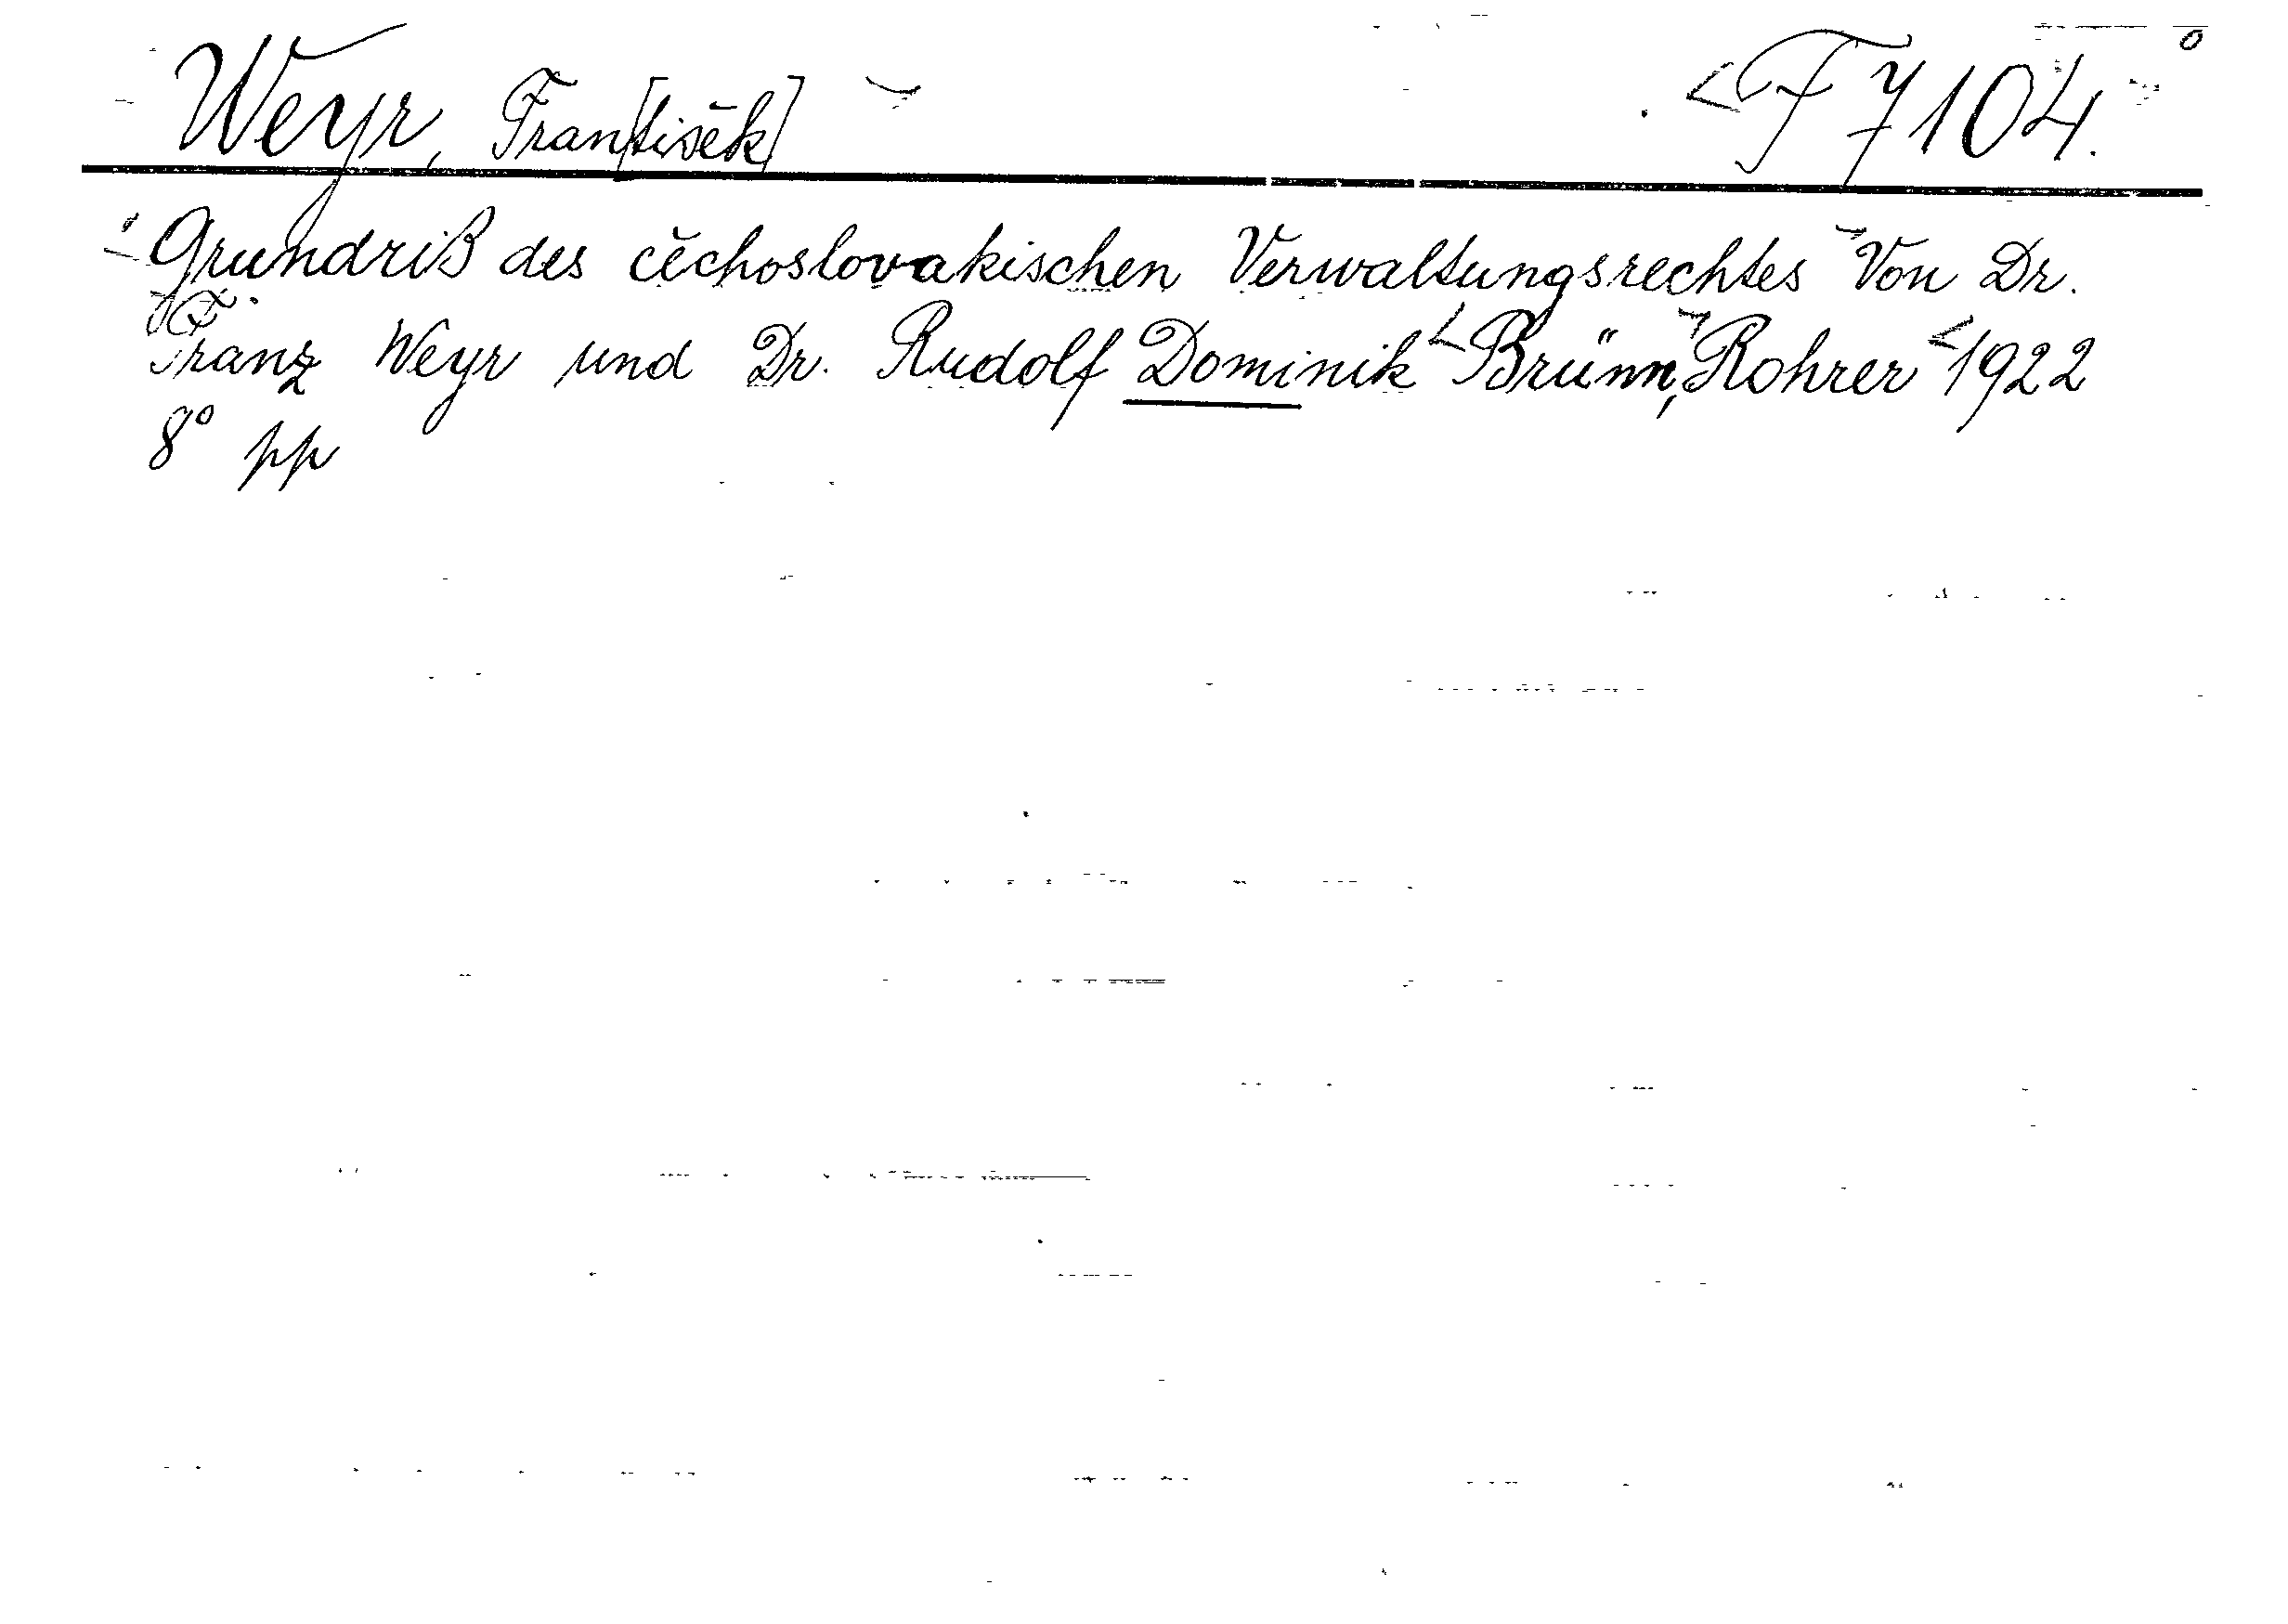 Weyr, Fran[tisěk] F 7104.
Grundriß des cěchoslovakischen Verwaltungsrechtes Von Dr.
Franz Weyr und Dr. Rudolf Dominik Brünn, Rohrer 1922
8° pp